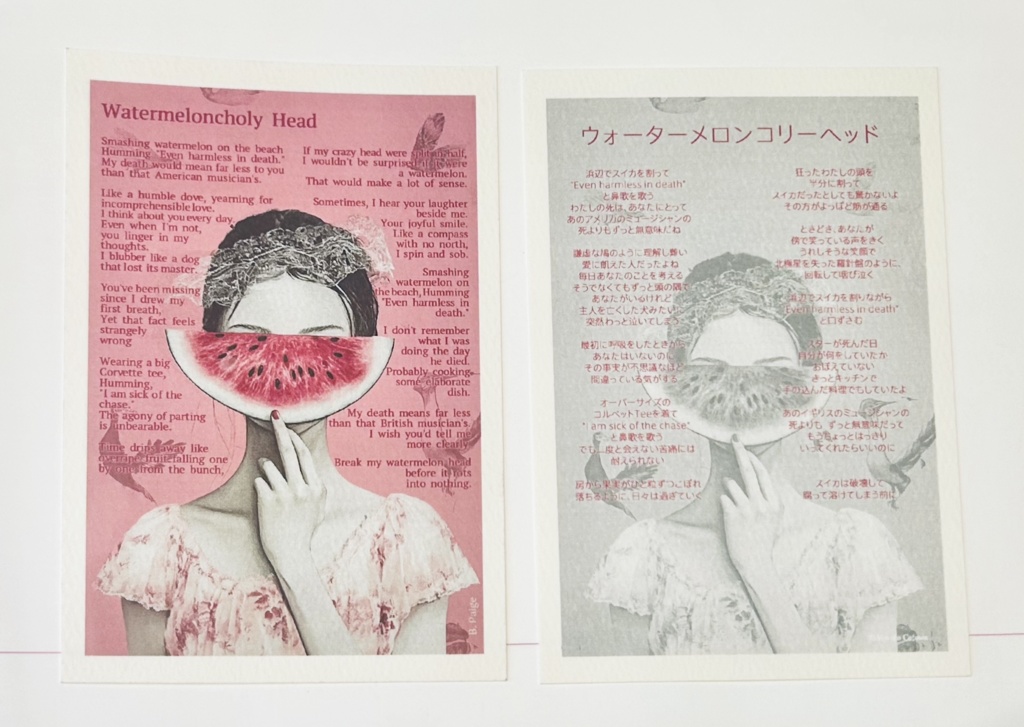 Watermeloncholy Head
Smashing watermelon on the beach
Humming "Even harmless in death."
My death would mean far less to you
than that American musician's.
Like a humble dove, yearning for
incomprehensible love.
I think about you every day.
Even when I'm not,
you linger in my
thoughts.
I blubber like a dog
that lost its master.
You've been missing
since I drew my
first breath,
Yet that fact feels
strangely
wrong
Wearing a big
Corvette tee,
Humming,
"I am sick of the
chase."
The agony of parting
is unbearable.
Time drips away like
overripe fruit falling one
by one from the bunch,
If my crazy head were split in half,
I wouldn't be surprised if it were
a watermelon.
That would make a lot of sense.
Sometimes, I hear your laughter
beside me.
Your joyful smile.
Like a compass
with no north,
I spin and sob.
Smashing
watermelon on
the beach, Humming
"Even harmless in
death."
I don't remember
what I was
doing the day
he died.
Probably cooking
some elaborate
dish.
My death means far less
than that British musician's
I wish you'd tell me
more clearly.
Break my watermelon head
before it rots
into nothing.
B. Paige
ウォーターメロンコリーヘッド
浜辺でスイカを割って
"Even harmless in death"
と鼻歌を歌う
わたしの死は、あなたにとって
あのアメリカのミュージシャンの
死よりもずっと無意味だね
謙虚な鳩のように理解し難い
愛に飢えた人だったよね
毎日あなたのことを考える
そうでなくてもずっと頭の隅で
あなたがいるけれど
主人を亡くした犬みたいに
突然わっと泣いてしまう
最初に呼吸をしたときから
あなたはいないのに
その事実が不思議なほど
間違っている気がする
オーバーサイズの
コルベットTeeを着て
"I am sick of the chase"
と鼻歌を歌う
でも二度と会えない苦痛には
耐えられない
房から果実がひと粒ずつこぼれ
落ちるように、日々は過ぎていく
狂ったわたしの頭を
半分に割って
スイカだったとしても驚かないよ
その方がよっぽど筋が通る
ときどき、あなたが
傍で笑っている声をきく
うれしそうな笑顔で
北極星を失った羅針盤のように、
回転して咽び泣く
浜辺でスイカを割りながら
"Even harmless in death"
と口ずさむ
スターが死んだ日
自分が何をしていたか
おぼえていない
きっとキッチンで
手の込んだ料理でもしていたよ
あのイギリスのミュージシャンの
死よりも ずっと無意味だって
もうちょっとはっきり
いってくれたらいいのに
スイカは破壊して
腐って溶けてしまう前に